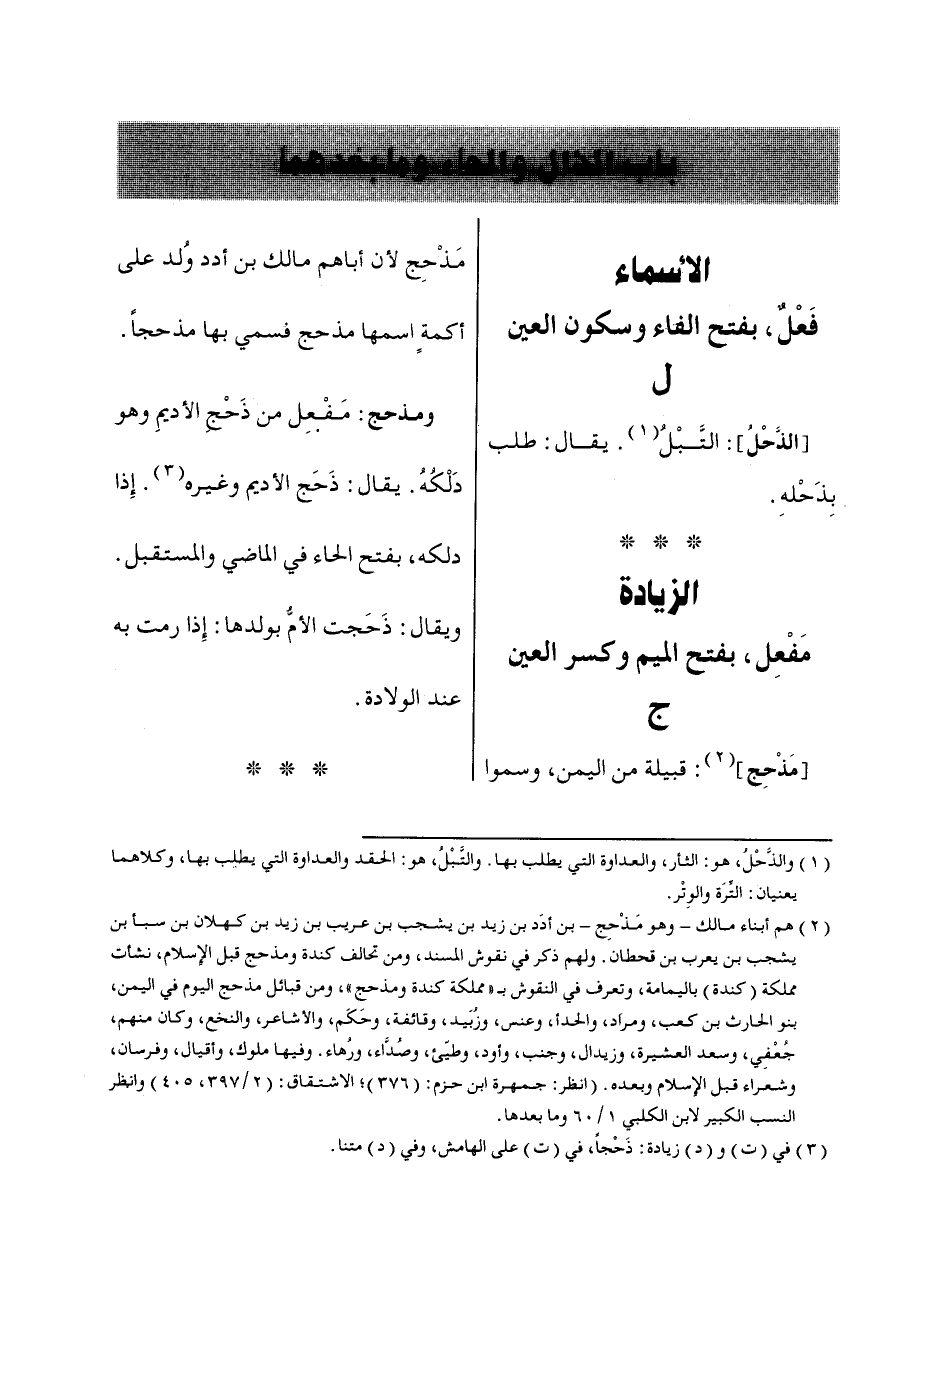 باب الذال والحاء وما بعدهما
الأسماء
فَعْلٌ، بفتح الفاء وسكون العين
ل
[الذَّحْلُ]: التَّبْلُ(١). يقال: طلب
بِذَحْلِه.
* * *
الزيادة
مَفْعِل، بفتح الميم وكسر العين
ج
[مَذْحِج](٢): قبيلة من اليمن، وسموا
مَذْحِج لأن أباهم مالك بن أدد وُلد على
أكمةٍ اسمها مذحج فسمي بها مذحجاً.
ومذحج: مَفْعِل من ذَحْجِ الأديمِ وهو
دَلْكُهُ. يقال: ذَحَج الأديم وغيره(٣). إِذا
دلكه، بفتح الحاء في الماضي والمستقبل.
ويقال: ذَحَجت الأمُّ بولدها: إِذا رمت به
عند الولادة.
* * *
(١) والذَّحْلُ، هو: الثأر، والعداوة التي يطلب بها. والتَّبْلُ، هو: الحقد والعداوة التي يطلب بها، وكلاهما
يعنيان: التِّرَة والوِتْر.
(٢) هم أبناء مالك – وهو مَذْحِج – بن أدَد بن زيد بن يشجب بن عريب بن زيد بن كهلان بن سبأ بن
يشجب بن يعرب بن قحطان. ولهم ذكر في نقوش المسند، ومن تحالف كندة ومذحج قبل الإسلام، نشأت
مملكة (كندة) باليمامة، وتعرف في النقوش بـ«مملكة كندة ومذحج»، ومن قبائل مذحج اليوم في اليمن،
بنو الحارث بن كعب، ومراد، والحدأ، وعنس، وزُبَيد، وقائفة، وحَكَم، والأشاعر، والنخع، وكان منهم،
جُعْفي، وسعد العشيرة، وزيدال، وجنب، وأود، وطيّئ، وصُدَّاء، ورُهاء. وفيها ملوك، وأقيال، وفرسان،
وشعراء قبل الإسلام وبعده. (انظر: جمهرة ابن حزم: (٣٧٦)؛ الاشتقاق: (٣٩٧/٢، ٤٠٥) وانظر
النسب الكبير لابن الكلبي ٦٠/١ وما بعدها.
(٣) في (ت) و(د) زيادة: ذَحْجاً، في (ت) على الهامش، وفي (د) متنا.